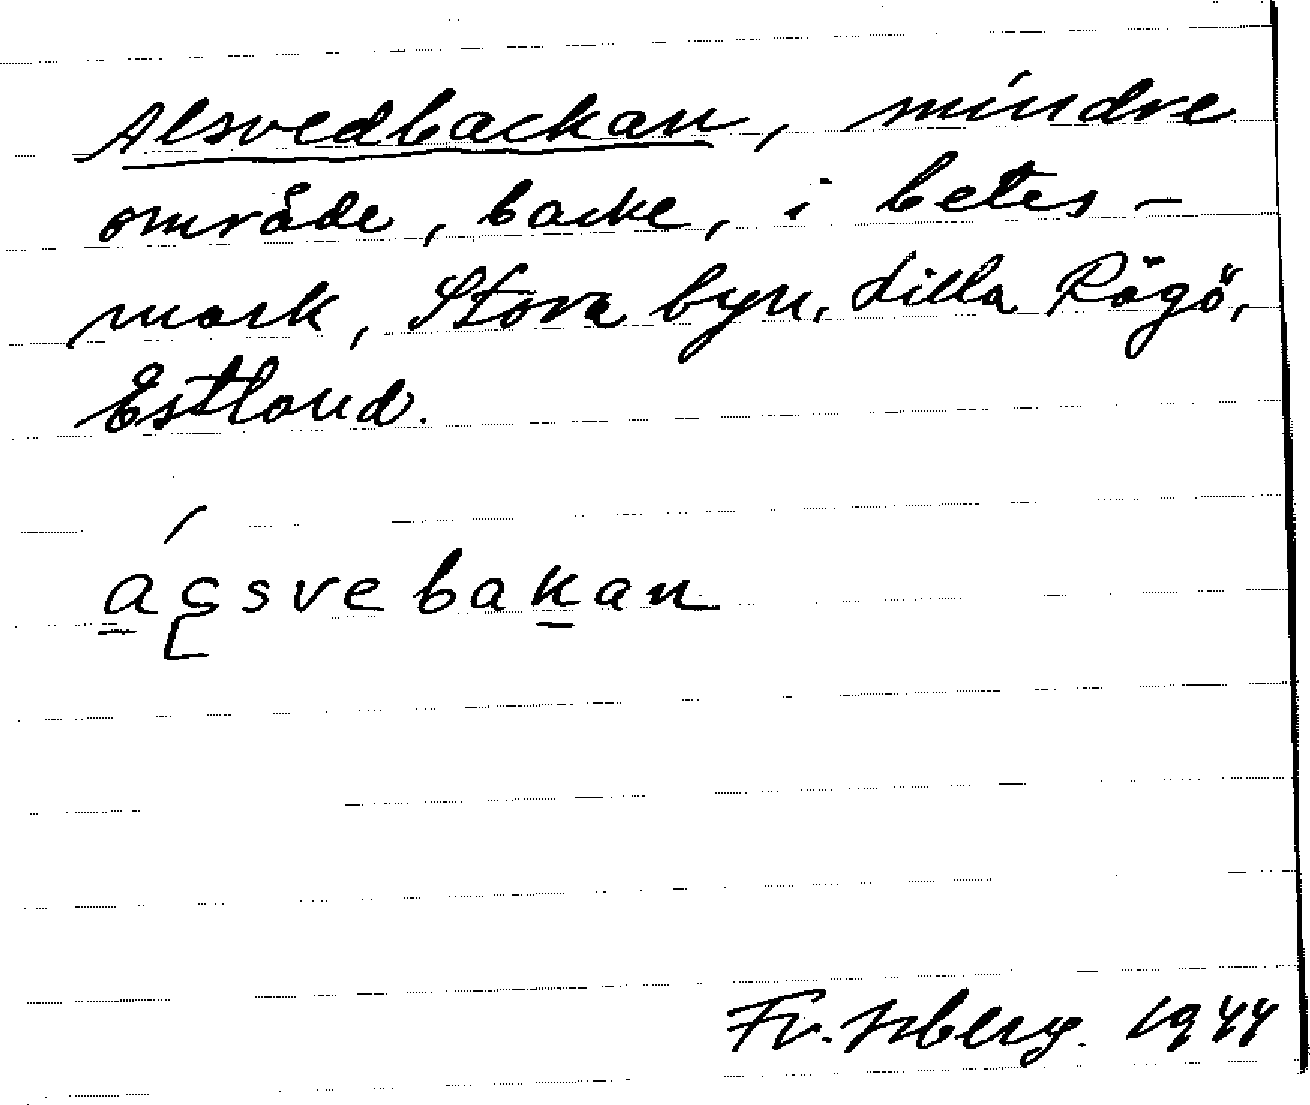 Alsvedbackan, mindre
område, backe, i betes-
mark, Stora byn, Lilla Rågö,
Estland.
Fr. 1944